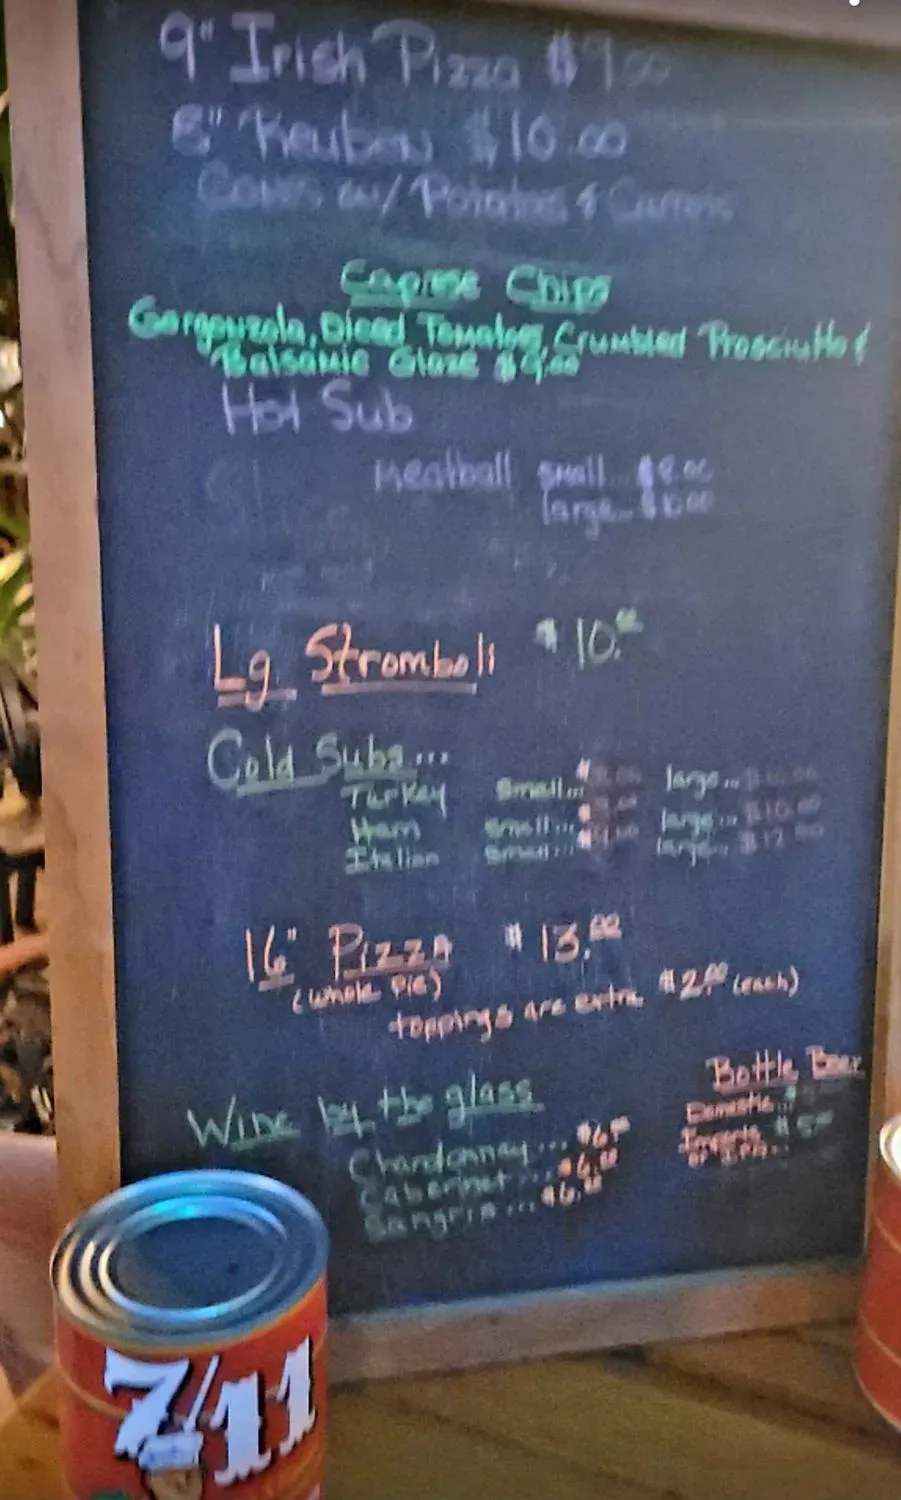 9" Irish Pizza $9.00
8" Reuben $10.00
Comes w/ Potatoes & Carrots
Caprese Chips
Gorgonzola, Diced Tomatoes, Crumbled Prosciutto &
Balsamic Glaze $9.00
Hot Sub
Meatball small... $8.00
large...
Lg Stromboli $10.00
Cold Subs...
Turkey small... large... $10.00
Ham small... large... $10.00
Italian small... large... $12.00
16" Pizza $13.00
(whole pie)
toppings are extra $2.00 (each)
Wine by the glass
Chardonnay... $6.00
Cabernet... $6.00
Sangria... $6.00
Bottle Beer
Domestic..
Imports $5.00
or IPA..
7/11